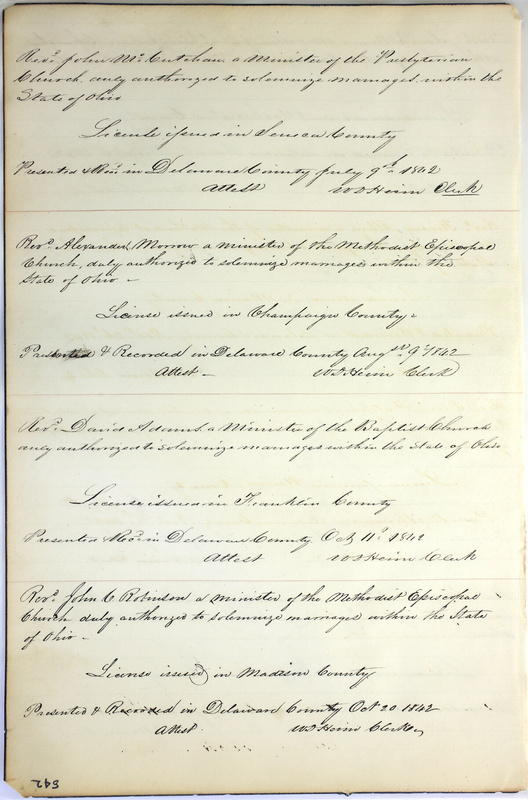 Revd. John Mc Cutchan a Minister of the Presbyterian
Church duly authorized to solemnize marriages within the
State of Ohio
License issued in Seneca County
Presented & Recd. in Delaware County July 9th 1842
Attest W D Heim Clerk
Revd. Alexander Morrow a minister of the Methodist Episcopal
Church, duly authorized to solemnize marriages within the
State of Ohio –
License issued in Champaign County –
Presented & Recorded in Delaware County Augst. 9th 1842
Attest – W D Heim Clerk
Revd. David Adams, a Minister of the Baptist Church
duly authorized to solemnize marriages within the State of Ohio
License issued in Franklin County
Presented & Recd. in Delaware County Oct 11th 1842
Attest W D Heim Clerk
Revd. John C Robinson a minister of the Methodist Episcopal
Church duly authorized to solemnize marriages within the State
of Ohio –
License issued in Madison County
Presented & Recorded in Delaware County Oct 20 1842
Attest W D Heim Clerk
542